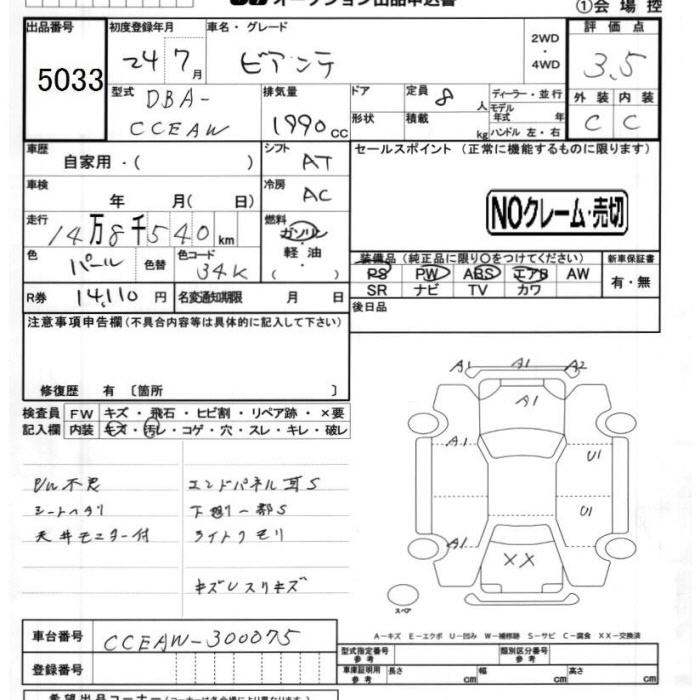 オークション出品申込書
①会場控
出品番号 初度登録年月 車名・グレード 2WD・4WD 評価点
5033 24 7月 ビアンテ 3.5
型式 DBA-CCEAW 排気量 1990cc ドア 形状 定員 8人 積載 kg ディーラー・並行 モデル年式 年式 ハンドル 左・右 外装 内装
C C
車歴 自家用・( ) シフト AT セールスポイント (正常に機能するものに限ります)
車検 年 月( 日) 冷房 AC
NOクレーム・売切
走行 14万8千540km 燃料 ガソリン・軽油・( )
色 パール 色替 色コード 34K
装備品 (純正品に限り○をつけてください) 新車保証書
PS PW ABS エアB AW 有・無
SR ナビ TV カワ
R券 14,110円 名変通知期限 月 日
後日品
注意事項申告欄 (不具合内容等は具体的に記入して下さい)
修復歴 有 〔箇所 〕
検査員 FW キズ・飛石・ヒビ割・リペア跡・×要
記入欄 内装 キズ・汚レ・コゲ・穴・スレ・キレ・破レ
シートヘタリ
天井モニター付
エンドパネル耳S
下廻り一部S
ライトクモリ
キズUスリキズ
A1 A1 A2
A1
A1 U1
U1
A1
XX
スペア
A-キズ E-エクボ U-凹み W-補修跡 S-サビ C-腐食 XX-交換済
車台番号 CCEAW-300075
型式指定番号 参考 類別区分番号 参考
登録番号
車庫証明用 参考 長さ cm 幅 cm 高さ cm
希望出品コーナー